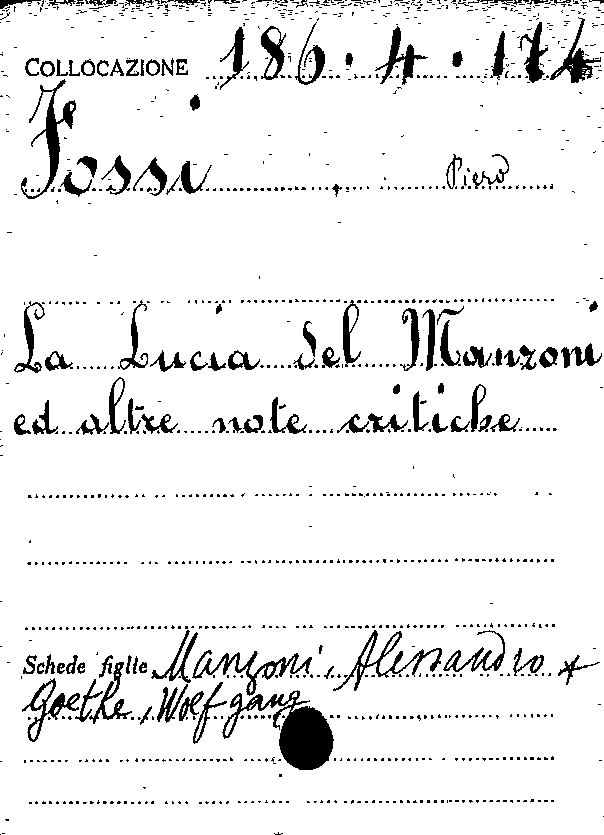 COLLOCAZIONE 186.4.174
Fossi Piero
La Lucia del Manzoni
ed altre note critiche
Schede figlie Manzoni, Alessandro +
Goethe, Wolfgang